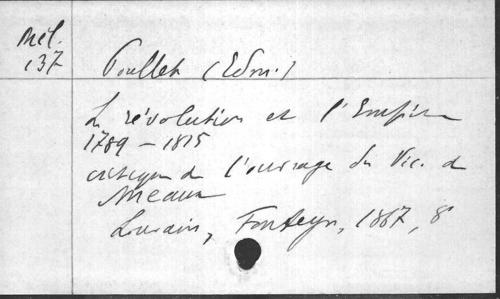 Mél.
137
Poullet (Edm.)
La révolution et l'Empire
1789 - 1815
critique de l'ouvrage du Vic. de
Meaux
Louvain, Fonteyn, 1867, 8°